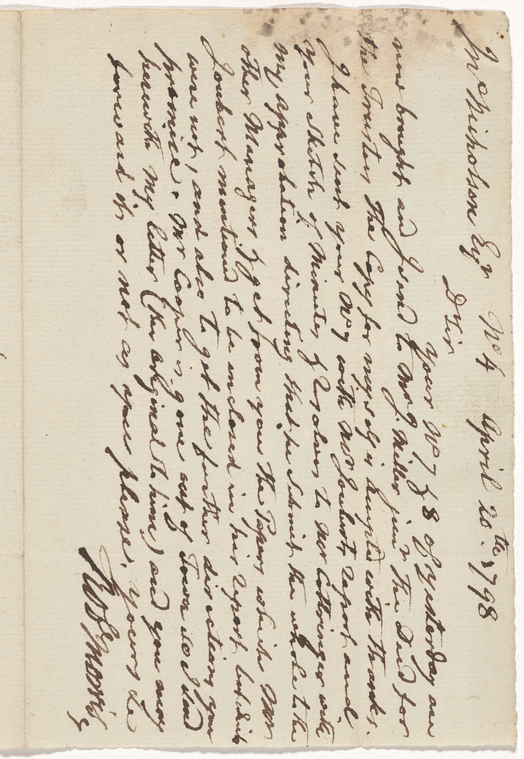 Jno Nicholson Esqr No 4 April 20th 1798
D Sir
Your No 7 & 8 of yesterday are
now brought and I send to Mr J Miller junr the Deed for
the Trustees, The Copy for myself is keept with thanks.
I have sent your No 7 with Mr Joubert report and
your sketch of Minutes & Resolves to Mr Cottringer with
my approbation directing that he submit the whole to the
other Managers & get from you the Papers which Mr
Joubert mentiond to be inclosed in his report but which
were not, and also to get the further directions you
promise. Mr Cooper is gone out of Town so I send
herewith my letter (the original to him) and you may
forward it or not as you please. Yours &c
Robt Morris